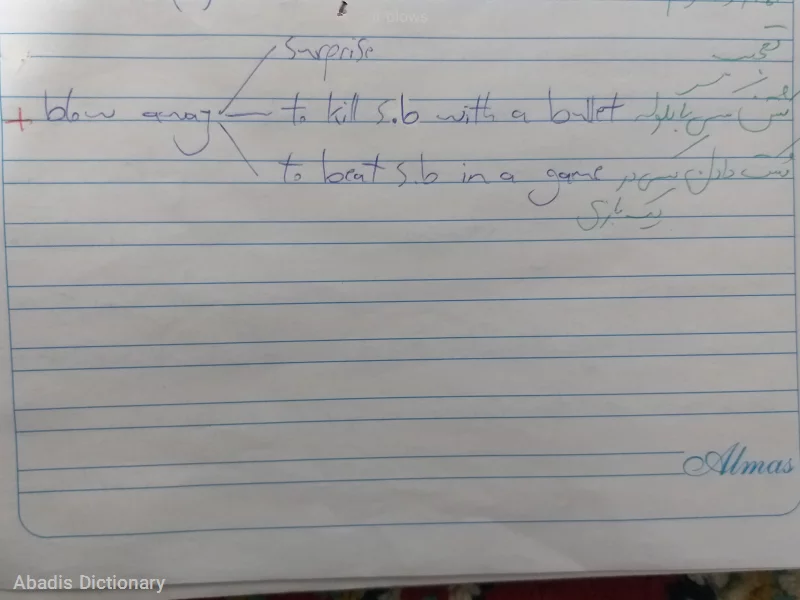 Surprise تعجب
+ blow away to kill s.b with a bullet
to beat s.b in a game شکست دادن کسی در
یک بازی
Almas
Abadis Dictionary